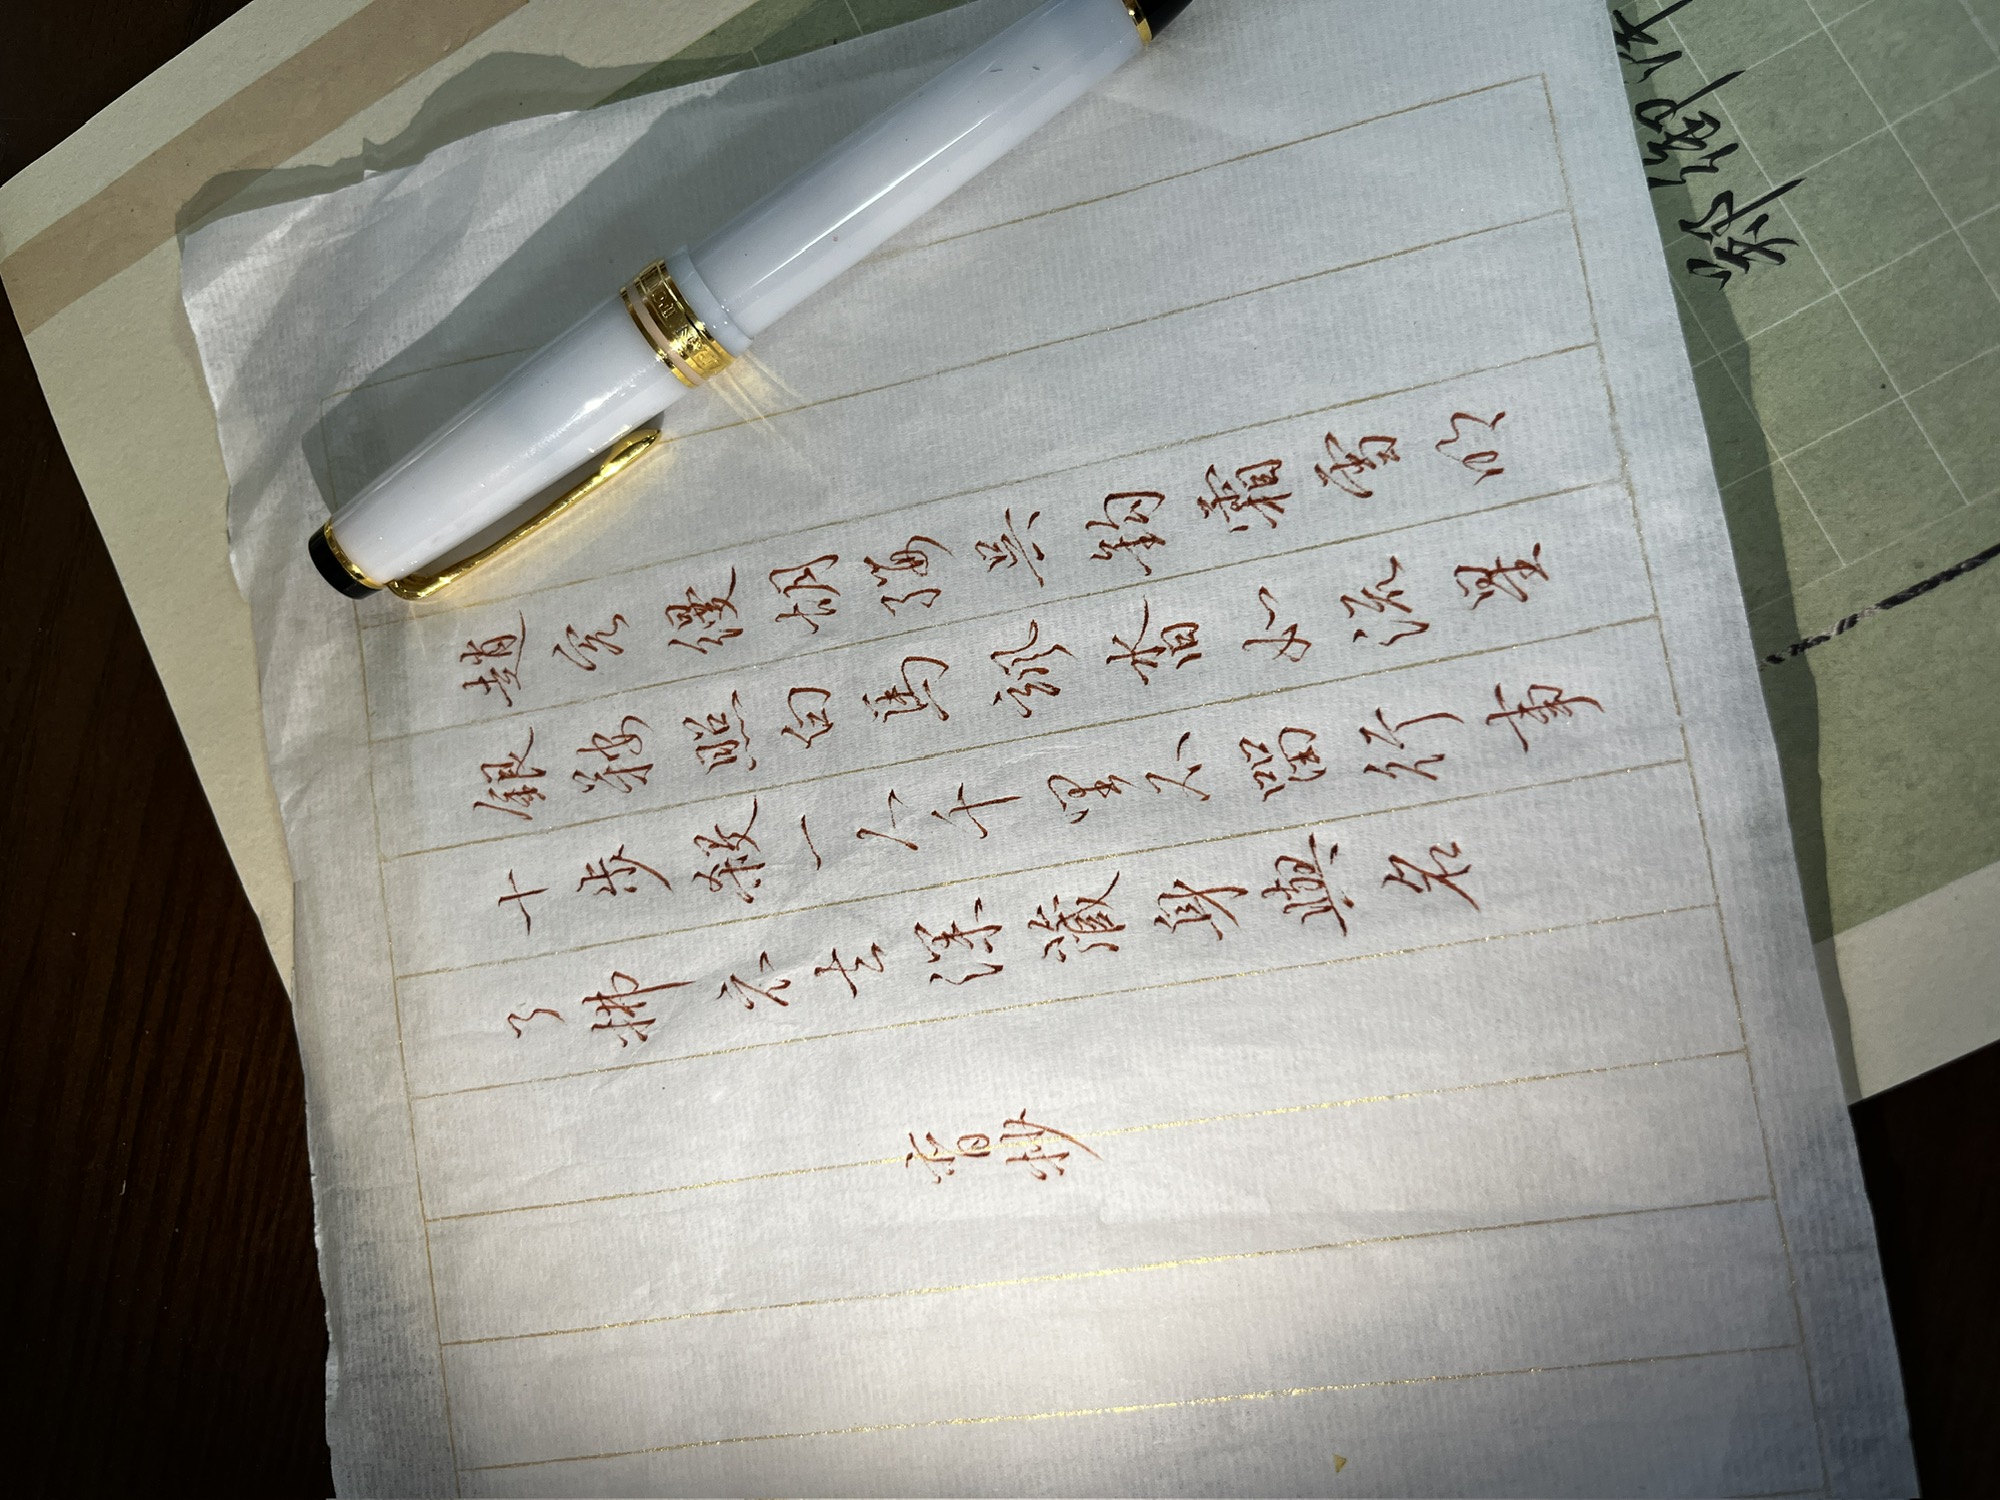 趙客縵胡纓吳鉤霜雪明
銀鞍照白馬颯沓如流星
十步殺一人千里不留行事
了拂衣去深藏身與名
抄